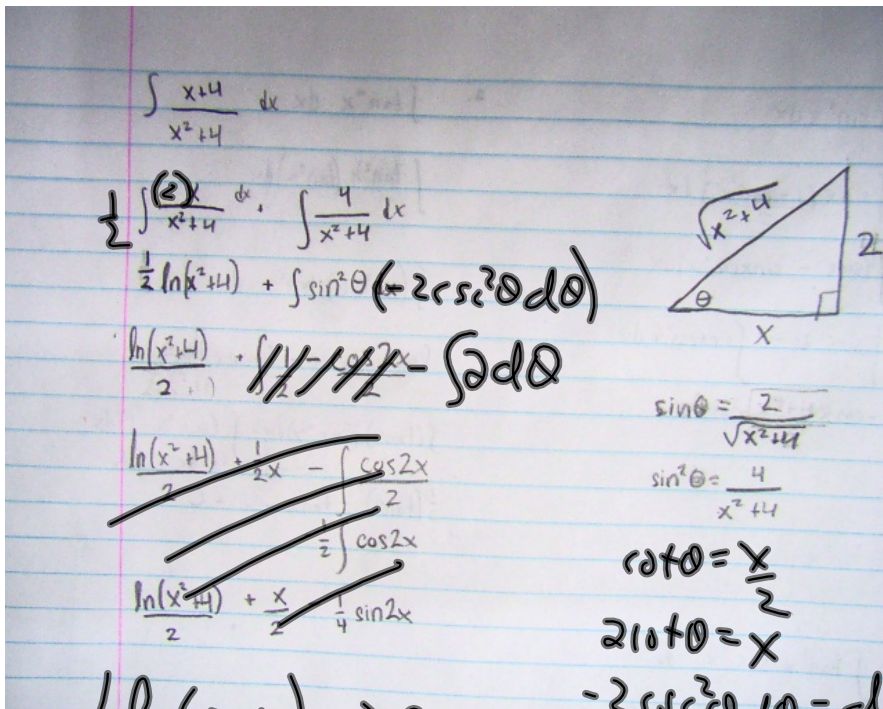 ∫ x+4 / x²+4 dx
½ ∫ (2)x / x²+4 dx + ∫ 4 / x²+4 dx
½ ln(x²+4) + ∫ sin²θ (-2csc²θdθ)
ln(x²+4) / 2 + ∫ 1/2 - cos2x / 2 - ∫2dθ
ln(x²+4) / 2 + ½x - ∫ cos2x / 2
½ ∫ cos2x
ln(x²+4) / 2 + x/2 ¼ sin2x
√x²+4
2
θ
x
sinθ = 2 / √x²+4
sin²θ = 4 / x²+4
cotθ = x/2
2cotθ = x